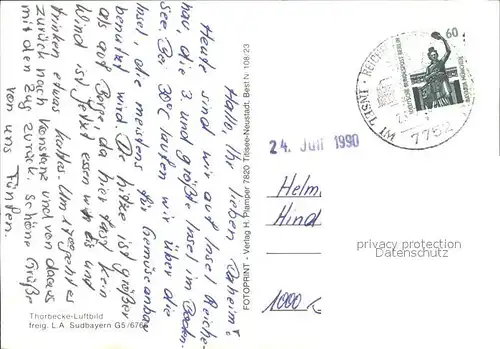 Hallo, Ihr lieben Daheim!
Heute sind wir auf Insel Reiche-
nau, die 3 und größte Insel im Boden-
see. Bei 30°C laufen wir über die
Insel, die meistens für Gemüseanbau
benutzt wird. Die Hitze ist größer
als auf Börse, da hier fast kein
Wind ist. Jetzt essen wir Eis und
trinken etwas kaltes. Um 17 geht es
zurück nach Konstanz und von da aus
mit den Zug zurück. Schöne Grüße
von uns Fünfen.
Thorbecke-Luftbild
freig. L.A. Südbayern G5/676
FOTOPRINT - Verlag H. Plamper 7820 Titisee-Neustadt, Best Nr. 108/23
60
DEUTSCHE BUNDESPOST BERLIN
INSEL IM
7752
24. Juli 1990
Helm.
Hind
1000
privacy protection
Datenschutz